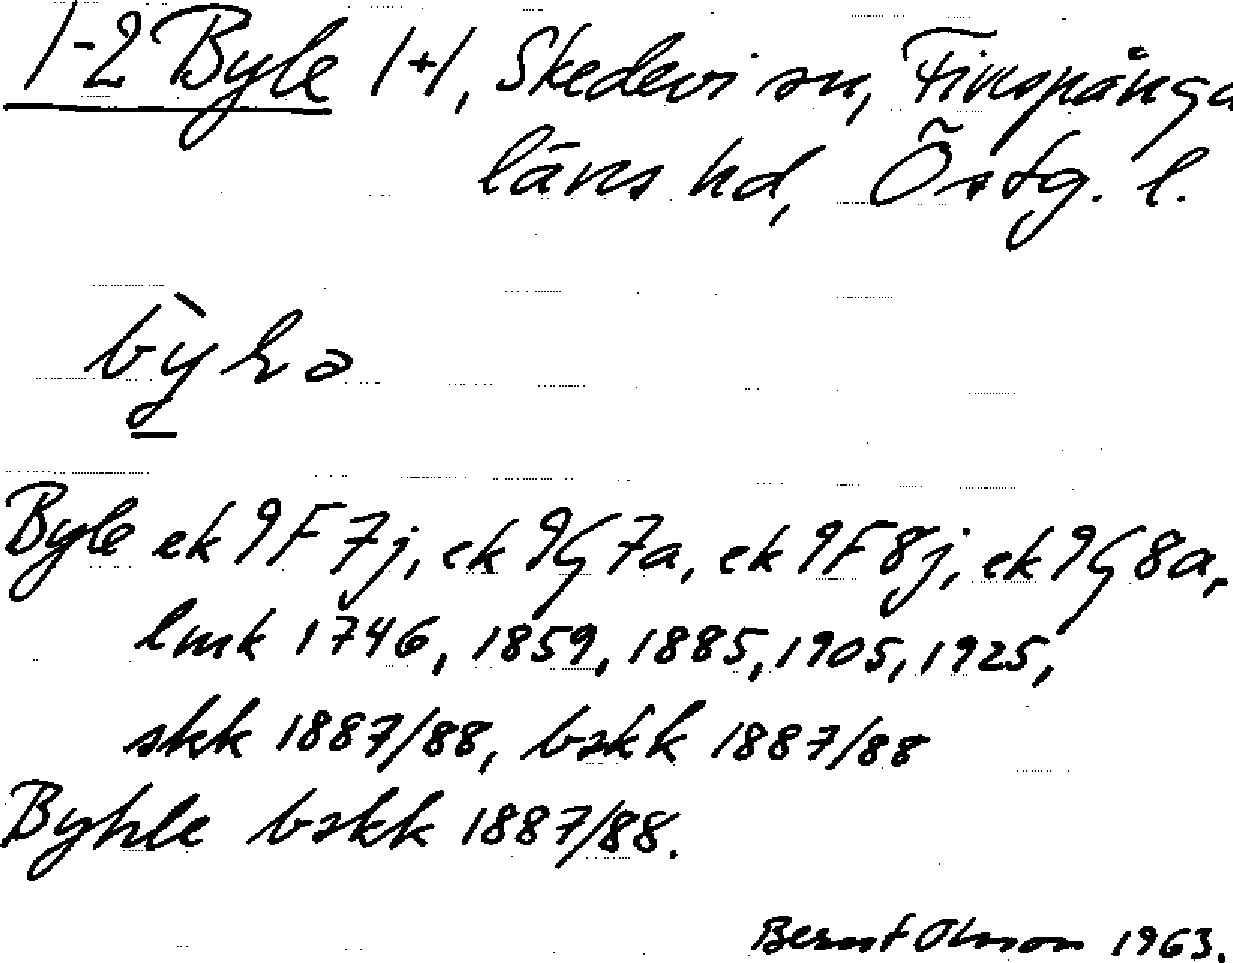 1-2 Byle 1+1, Skedevi sn, Finspånga
läns hd, Östg. l.
Byle ek 9F7j, ek 9G7a, ek 9F8j, ek 9G8a,
lmk 1746, 1859, 1885, 1905, 1925,
skk 1887/88, bskk 1887/88
Byhle bskk 1887/88.
Bernt Olsson 1963.